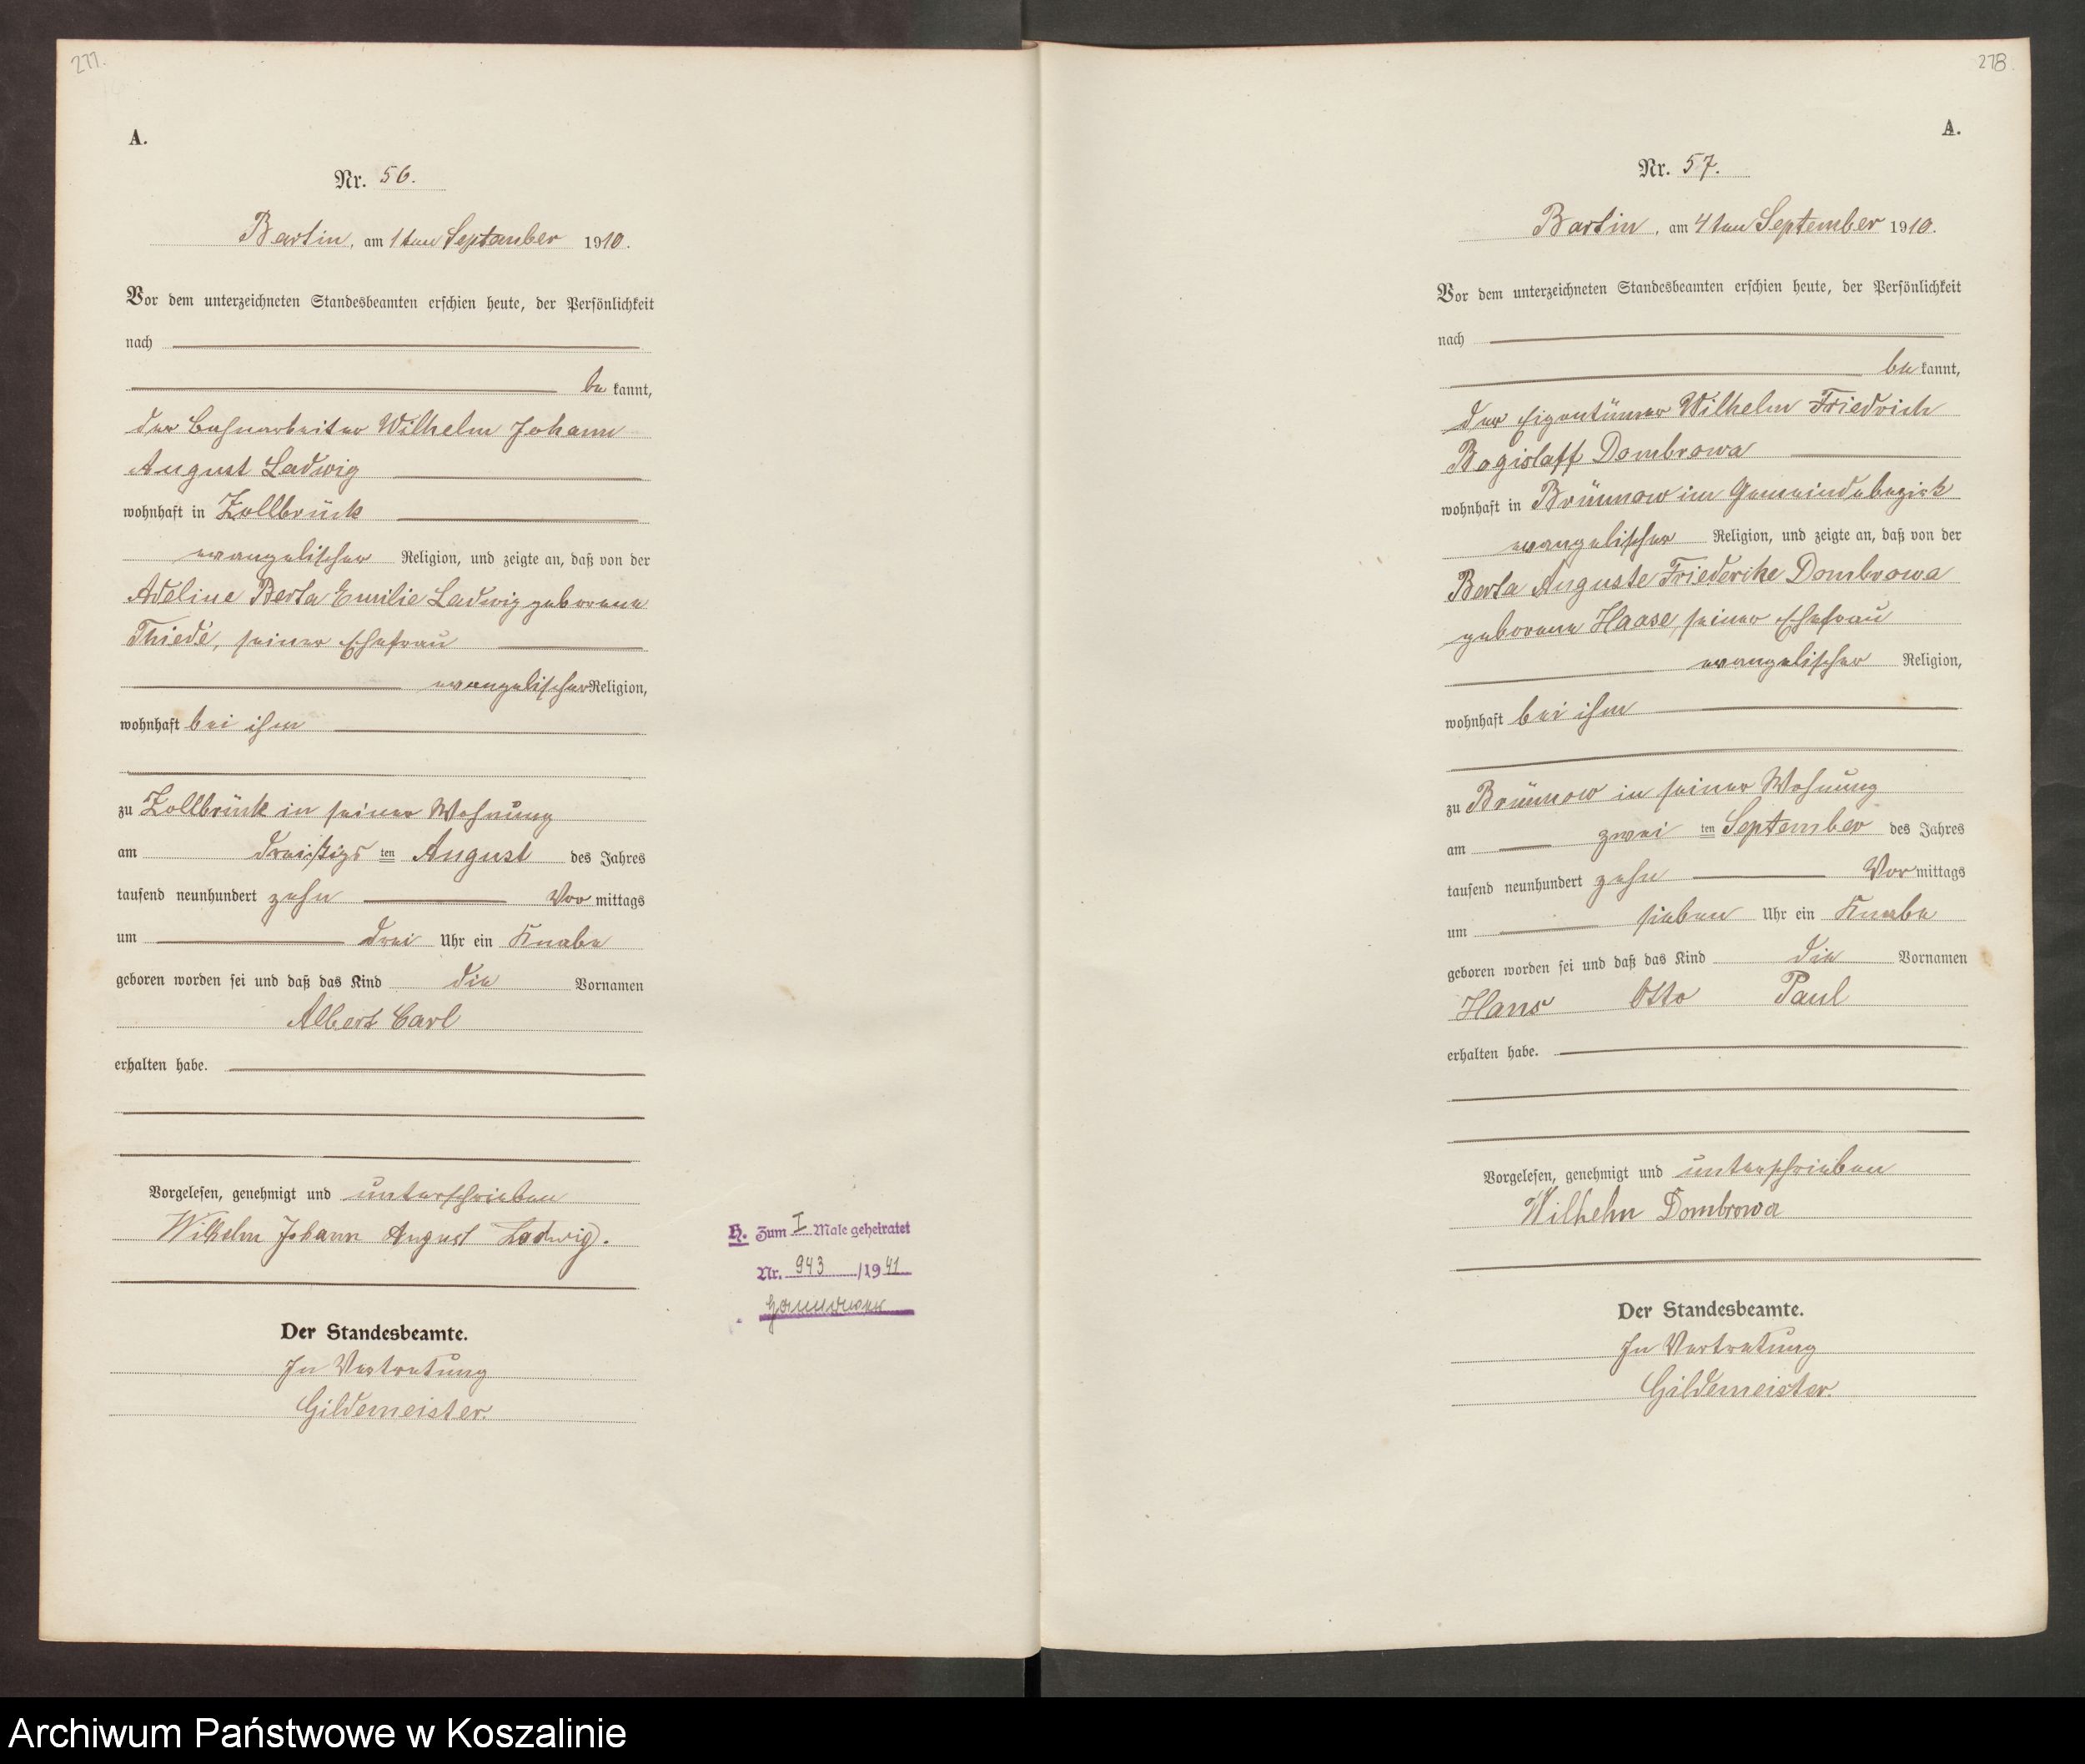 277.
A.
Nr. 56.
Bartin, am 1ten September 1910.
Vor dem unterzeichneten Standesbeamten erschien heute, der Persönlichkeit
nach
be kannt,
der Bahnarbeiter Wilhelm Johann
August Ladwig
wohnhaft in Zollbrück
evangelischer Religion, und zeigte an, daß von der
Adeline Berta Emilie Ladwig geborene
Thiede, seiner Ehefrau
evangelischer Religion,
wohnhaft bei ihm
zu Zollbrück in seiner Wohnung
am dreißigs ten August des Jahres
tausend neunhundert zehn Vor mittags
um drei Uhr ein Knabe
geboren worden sei und daß das Kind die Vornamen
Albert Carl
erhalten habe.
Vorgelesen, genehmigt und unterschrieben
Wilhelm Johann August Ladwig.
Der Standesbeamte.
In Vertretung
Gildemeister.
H. Zum I Male geheiratet
Nr. 943 /1941
278.
A.
Nr. 57.
Bartin, am 4ten September 1910.
Vor dem unterzeichneten Standesbeamten erschien heute, der Persönlichkeit
nach
be kannt,
der Eigentümer Wilhelm Friedrich
Bogislaff Dombrowa
wohnhaft in Brünnow im Gemeindebezirk
evangelischer Religion, und zeigte an, daß von der
Berta Auguste Friederike Dombrowa
geborene Haase, seiner Ehefrau
evangelischer Religion,
wohnhaft bei ihm
zu Brünnow in seiner Wohnung
am zwei ten September des Jahres
tausend neunhundert zehn Vor mittags
um sieben Uhr ein Knabe
geboren worden sei und daß das Kind die Vornamen
Hans Otto Paul
erhalten habe.
Vorgelesen, genehmigt und unterschrieben
Wilhelm Dombrowa
Der Standesbeamte.
In Vertretung
Gildemeister.
Archiwum Państwowe w Koszalinie